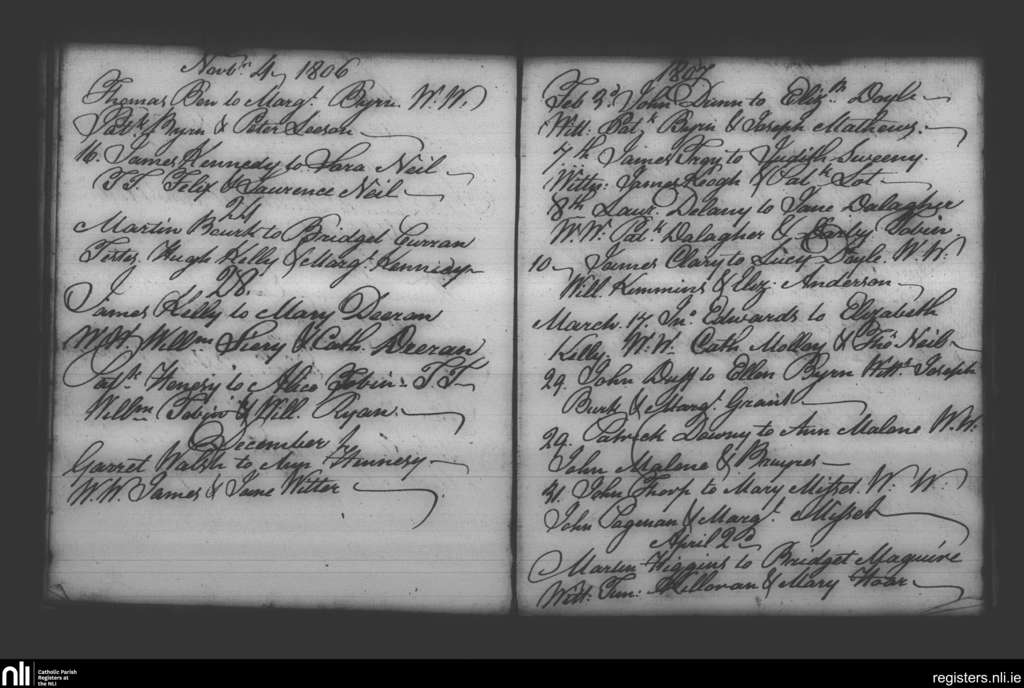 Novbr. 4, 1806
Thomas Bew to Margt. Byrn. W.W.
Patk. Byrn & Peter Leeson
16. James Kennedy to Sara Neil
T.T. Felix & Laurence Neil
24
Martin Bourk to Bridget Curran
Testes Hugh Kelly & Margt. Kennedy
28.
James Kelly to Mary Deeran
W.W. Willm Liery & Cath. Deeran
Patk. Henesy to Alice Tobin - T.T.
Willm Tobin & Will. Ryan.
December
Garret Walsh to Ann Hennesy
W.W. James & Jane Witter
1807
Feb 3d. John Dunn to Elizth Doyle
Witt. Patk Byrn & Joseph Mathews.
7.th James Troy to Judith Sweeny.
Wittn: James Keogh & Patk Lot
8th Laur. Delany to Jane Dalagher
W.W. Patk Dalagher & Darby Tobin.
10 James Clary to Lucy Doyle. W.W.
Will. Kimmins & Eliz. Anderson
March. 17. Jno. Edwards to Elizabeth
Kelly. W.W. Cath Molloy & Tho. Neil
29. John Duff to Ellen Byrn Witts. Joseph
Burk & Margt. Grant
29. Patrick Downy to Ann Malone W.W.
John Malone & Bruyres
31. John Thorp to Mary Misset W. W.
John Pageman & Margt. Misset
April 2d
Martin Higgins to Bridget Maguire
Witt: Tim: Hilloran & Mary Hoar
nli
Catholic Parish
Registers at
the NLI
registers.nli.ie